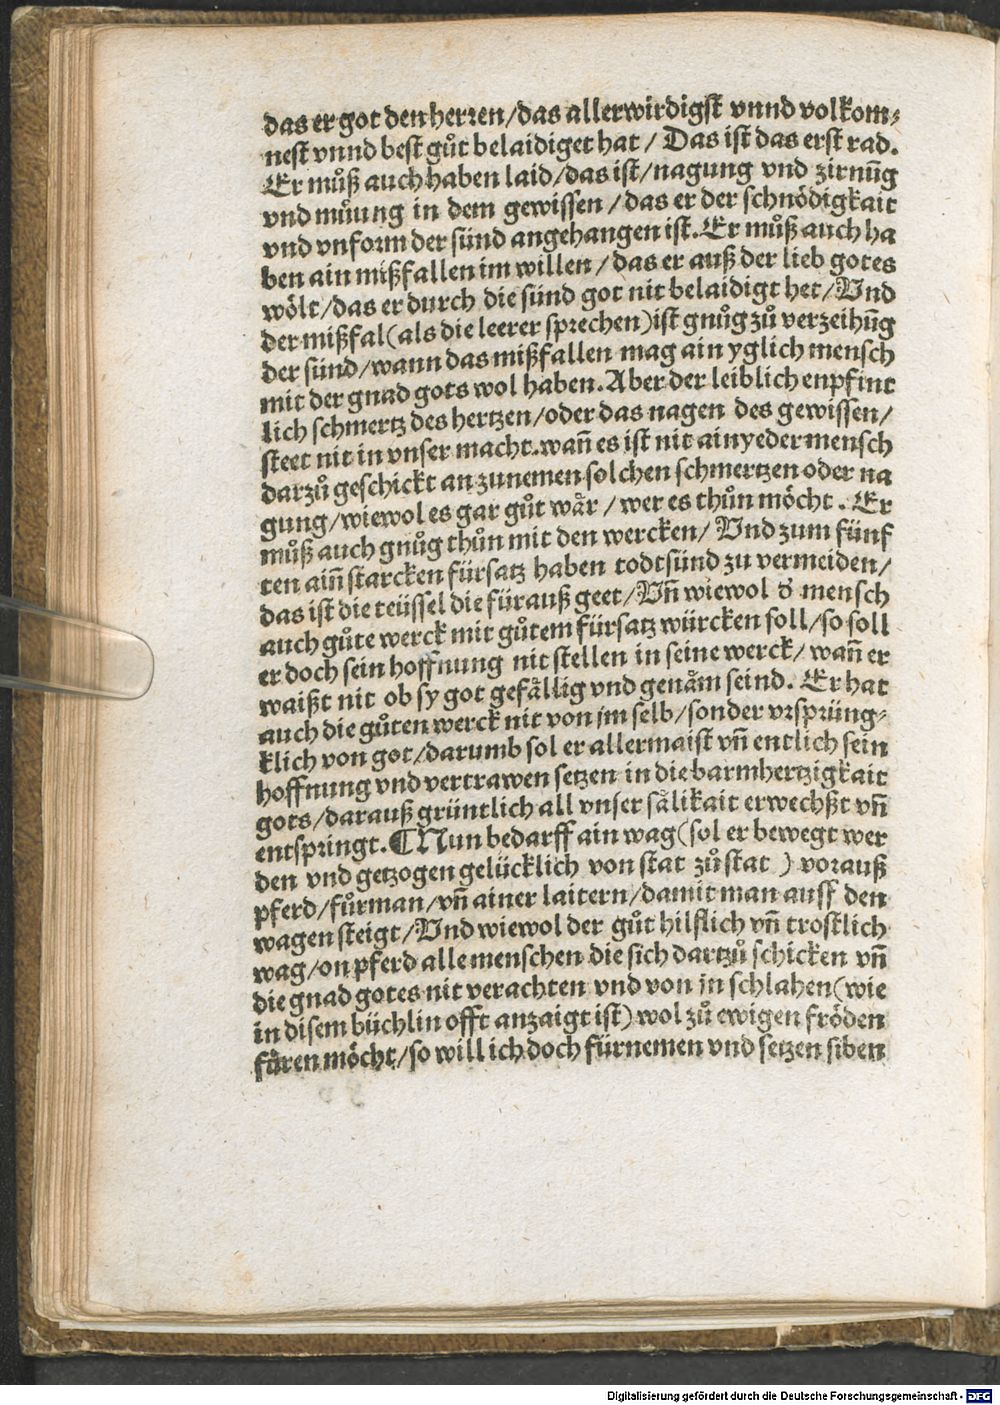 das er got den herren/das allerwirdigst vnnd volkom⸗
nest vnnd best gůt belaidiget hat / Das ist das erst rad.
Er můß auch haben laid/das ist/nagung vnd zirnūg
vnd můung in dem gewissen /das er der schnödigkait
vnd vnform der sünd angehangen ist. Er můß auch ha
ben ain mißfallen im willen /das er auß der lieb gotes
wölt/das er durch die sünd got nit belaidigt het/Vnd
der mißfal(als die leerer sprechen)ist gnůg zů verzeihūg
der sünd/wann das mißfallen mag ain yglich mensch
mit der gnad gots wol haben. Aber der leiblich enpfint
lich schmertz des hertzen/oder das nagen des gewissen/
steet nit in vnser macht. wañ es ist nit ain yeder mensch
darzů geschickt an zunemen solchen schmertzen oder na
gung/wiewol es gar gůt wår / wer es thůn möcht. Er
můß auch gnůg thůn mit den wercken/ Vnd zum fünf
ten aiñ starcken fürsatz haben todtsünd zu vermeiden/
das ist die teüssel die fürauß geet/Vñ wiewol d̕ mensch
auch gůte werck mit gůtem fürsatz würcken soll/so soll
er doch sein hoffnung nit stellen in seine werck/ wañ er
waißt nit ob sy got gefållig vnd genåm seind. Er hat
auch die gůten werck nit von jm selb/sonder vrsprüng⸗
klich von got/darumb sol er allermaist vñ entlich sein
hoffnung vnd vertrawen setzen in die barmhertzigkait
gots/darauß gründtlich all vnser sålikait erwechßt vñ
entspringt. ¶ Nun bedarff ain wag(sol er bewegt wer
den vnd getzogen gelücklich von stat zů stat ) vorauß
pferd/fůrman/vñ ainer laitern/damit man auff den
wagen steigt/Vnd wiewol der gůt hilflich vñ trostlich
wag/on pferd alle menschen die sich dartzů schicken vñ
die gnad gotes nit verachten vnd von jn schlahen(wie
in disem büchlin offt anzaigt ist) wol zů ewigen fröden
fůren möcht/so will ich doch fürnemen vnd setzen siben
Digitalisierung gefördert durch die Deutsche Forschungsgemeinschaft - DFG